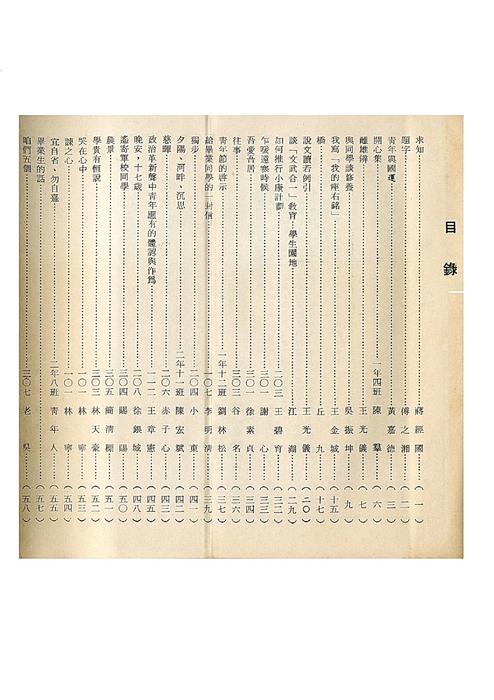 目錄
求知 蔣經國(一)
題字 傅之湘(二)
青年與國運 黃嘉德(三)
開心集 一年四班 陳羣(六)
雌雄辨 王光儀(七)
與同學談修養 吳振坤(九)
我寫「我的座右銘」 王金城(十五)
橋 丘九(十七)
說文讀若例引 王光儀(二〇)
談「文武合一」教育 江湖(二九)
學生園地
如何推行小康計劃 二〇三 王碧育(三二)
乍暖還寒時候 一〇一 謝心(三三)
吾愛吾居 三〇一 徐素貞(三四)
往事 三〇三 谷名(三六)
青年節的啓示 一年十二班 劉林松(三七)
給畢業同學的一封信 一〇七 李明清(三九)
獨步 二〇四 小東(四一)
夕陽、河畔、沉思 二年十一班 陳宏斌(四二)
慈暉 二〇六 赤子心(四三)
政治革新聲中青年應有的體認與作爲 一一二 王章憲(四五)
晚安，十七歲 二〇八 徐銀城(四八)
遙寄軍校同學 三〇四 賜陽(五〇)
晨景 三〇五 簡清棚(五一)
學貴有恒說 三〇三 林天豪(五二)
哭在心中 一〇一 林寧(五三)
諫之心 一〇一 林寧(五四)
宜自省、勿自喜 二年八班 青年人(五五)
畢業生的話 (五七)
咱們五個 三〇七 老吳(五八)